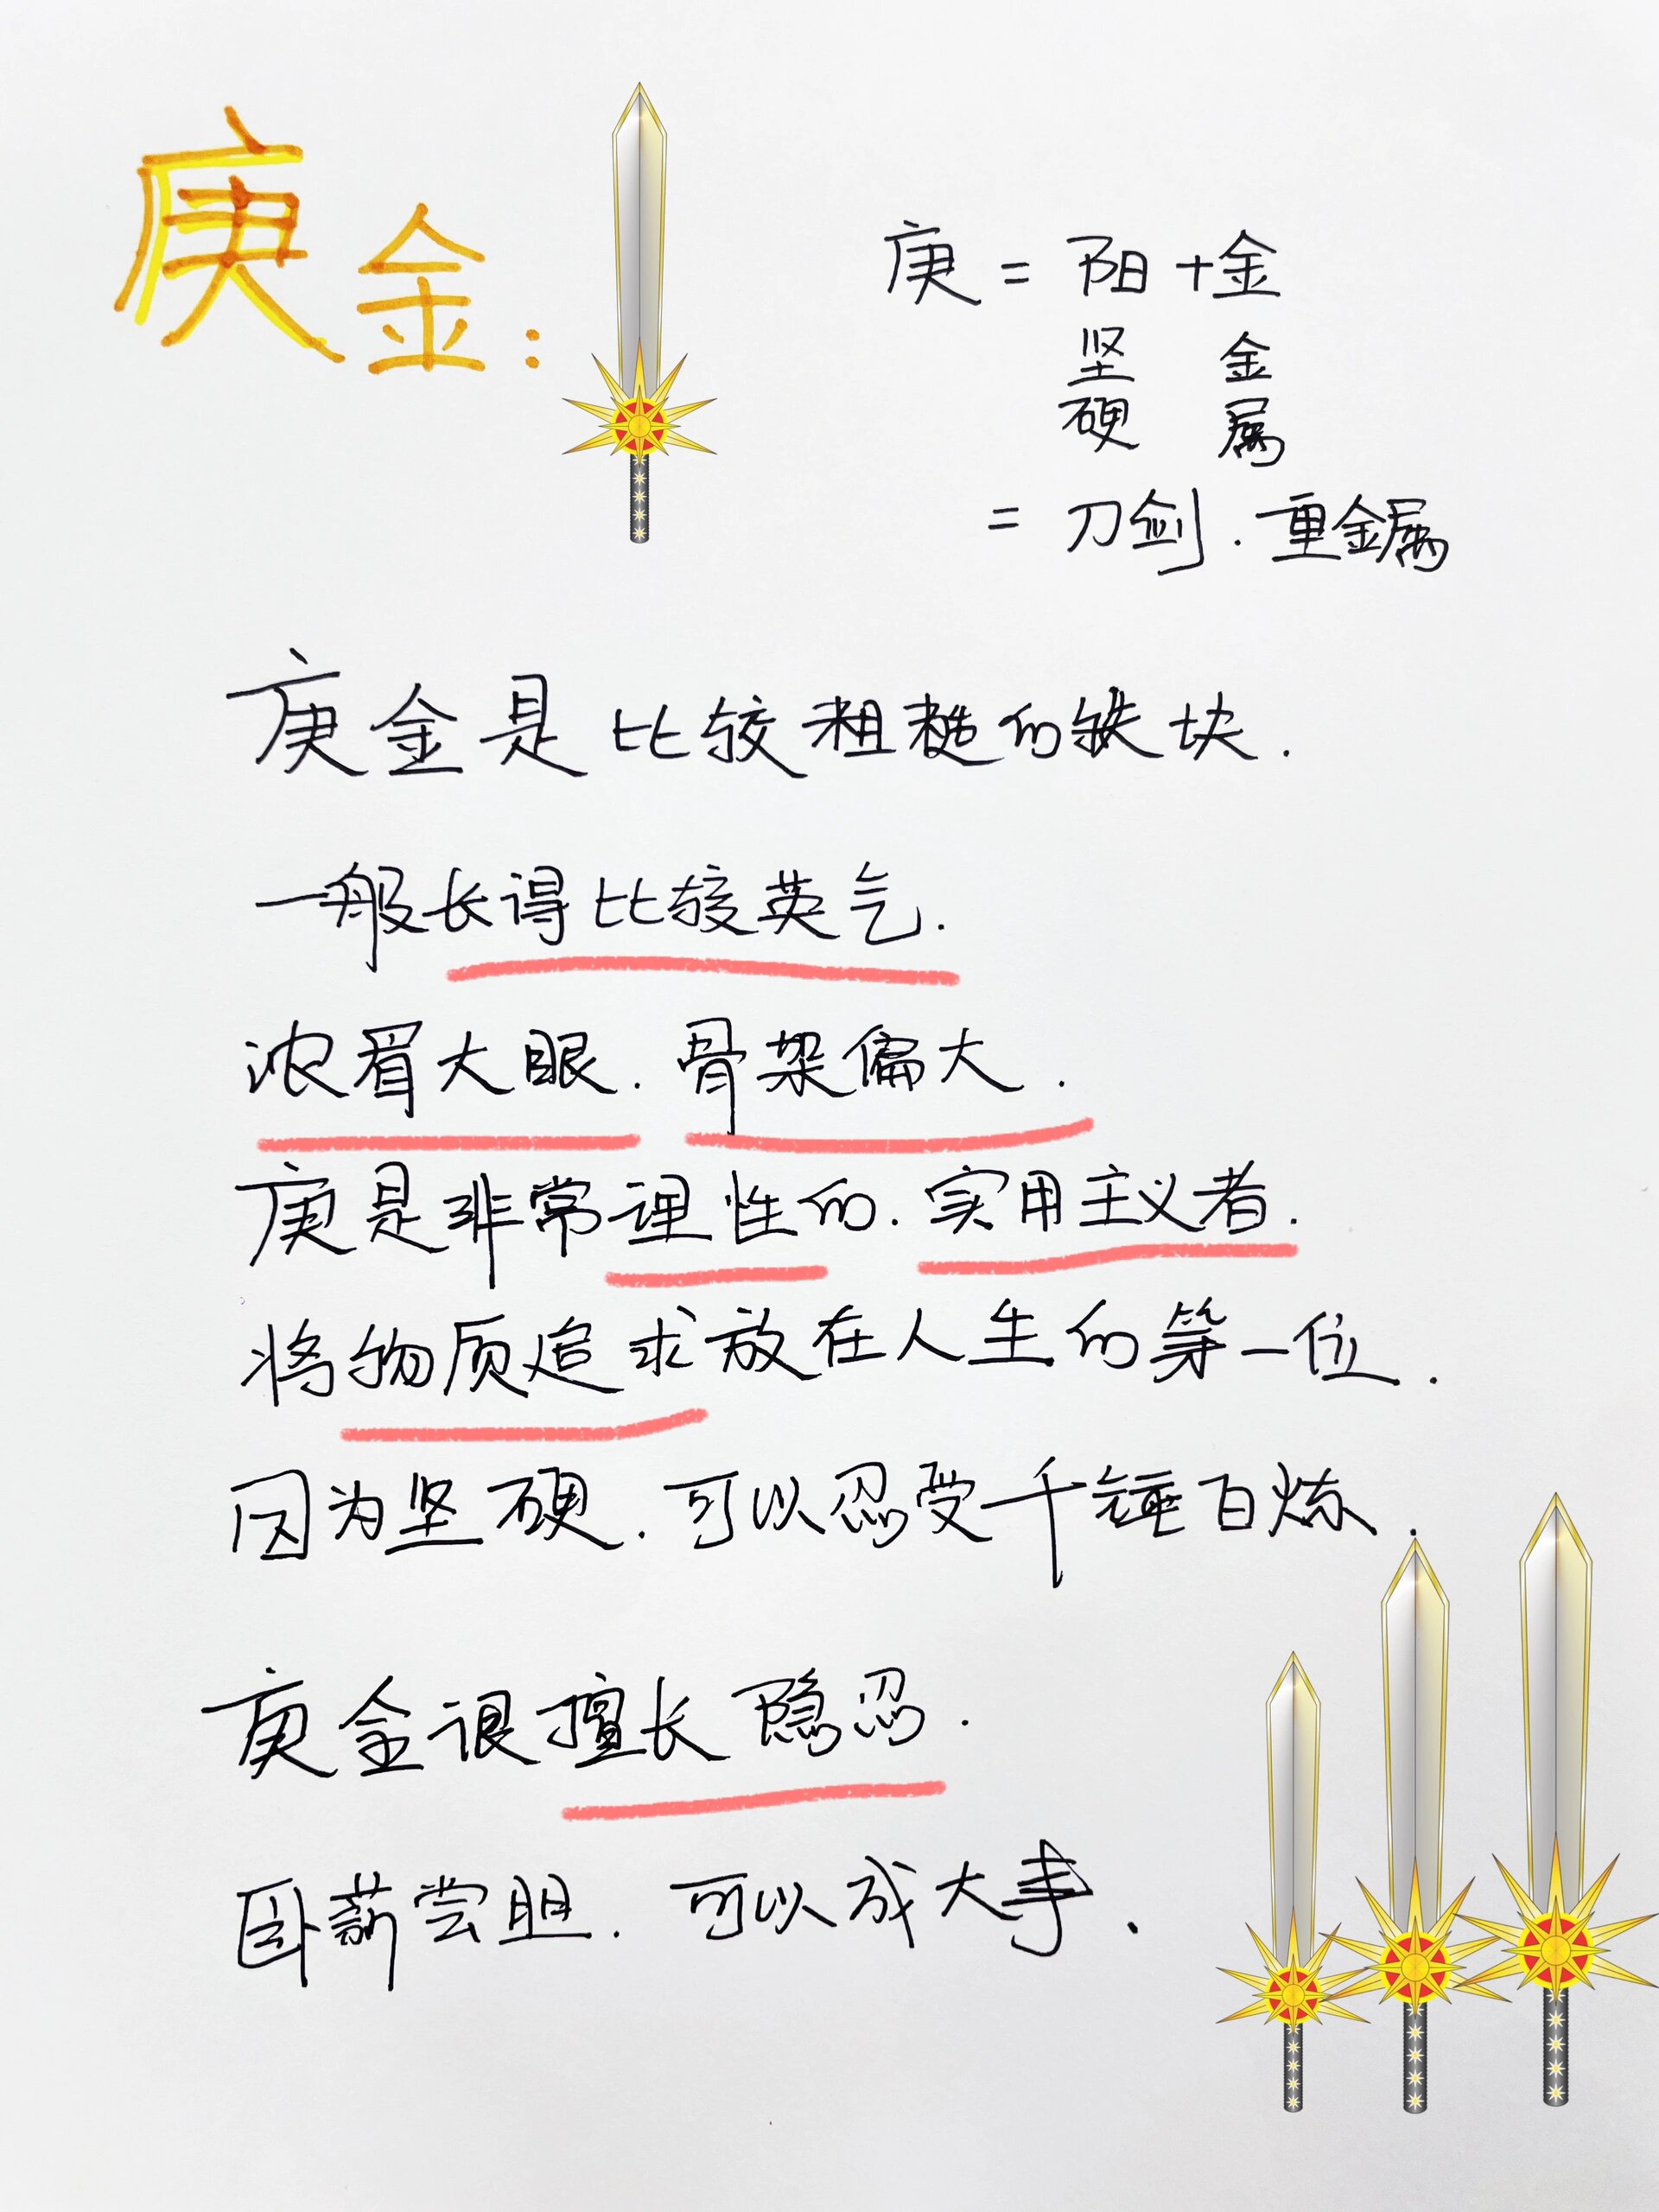 庚金:
庚 = 阳 + 金
坚 金
硬 属
= 刀剑. 重金属
庚金是比较粗糙的铁块.
一般长得比较英气.
浓眉大眼. 骨架偏大.
庚是非常理性的. 实用主义者.
将物质追求放在人生的第一位.
因为坚硬. 可以忍受千锤百炼.
庚金很擅长隐忍.
卧薪尝胆. 可以成大事.